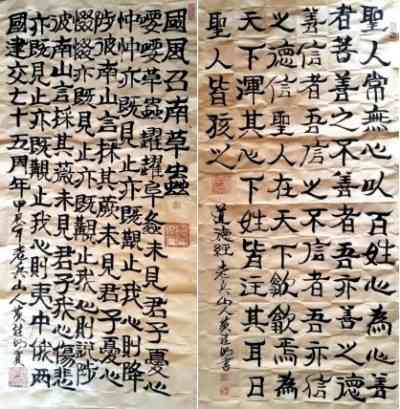 聖人常無心以百姓心為心善
者吾善之不善者吾亦善之德
善信者吾信之不信者吾亦信
之德信聖人在天下歙歙焉為
天下渾其心百姓皆注其耳目
聖人皆孩之
道德經 老兵山人黃書
國風召南草蟲
喓喓草蟲趯趯阜螽未見君子憂心
忡忡亦既見止亦既覯止我心則降
陟彼南山言採其蕨未見君子憂心
惙惙亦既見止亦既覯止我心則說陟
彼南山言採其薇未見君子我心傷悲
亦既見止亦既覯止我心則夷中俄兩
國建交七十五周年 甲辰年 老兵山人黃書